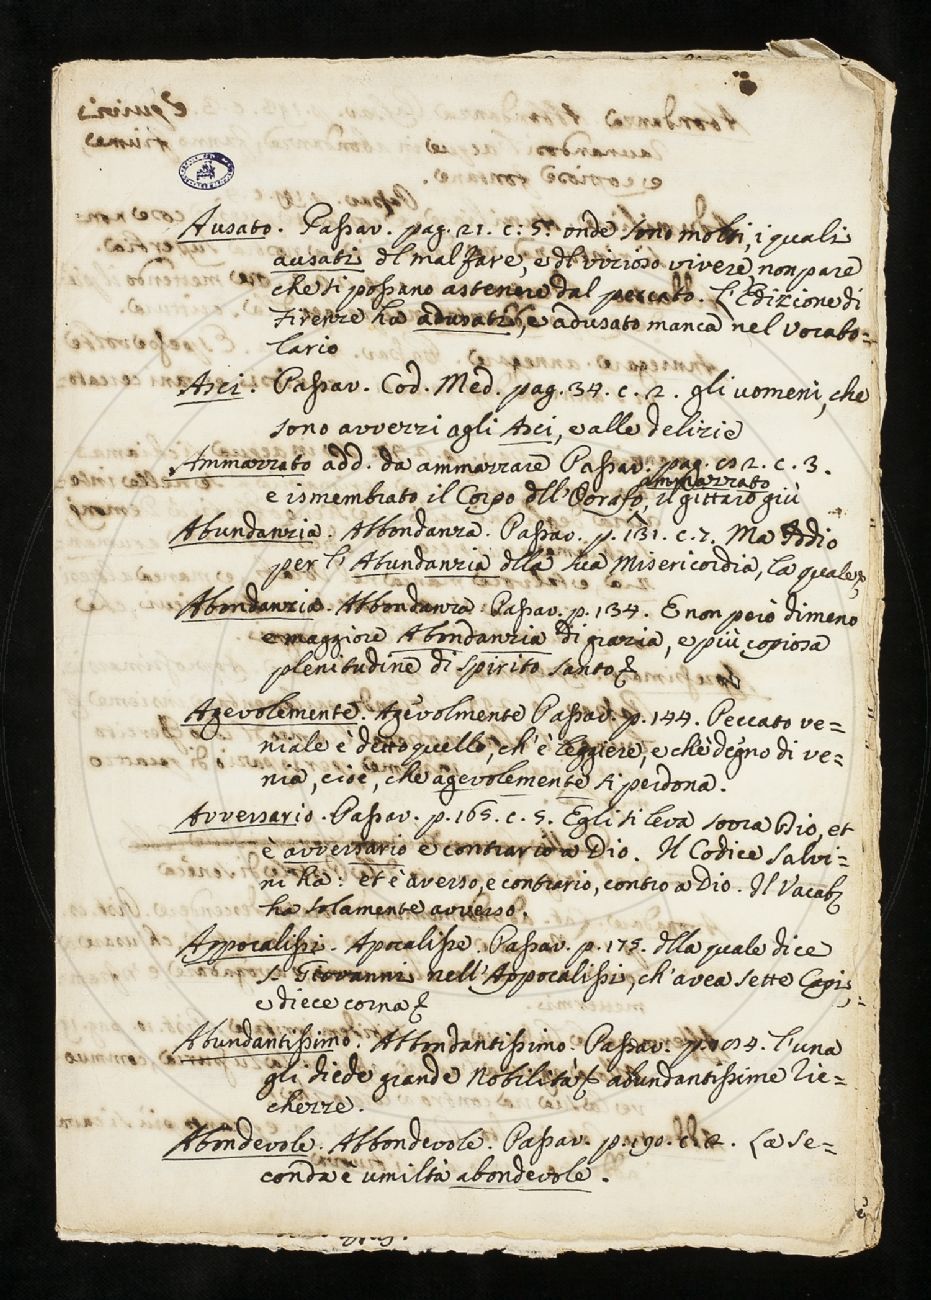 Ausato. Passav. pag. 21. c. 5. onde sono molti, i quali
ausati al mal fare, e al vizioso vivere, non pare
che si possano astenere dal peccato. L'Edizione di
Firenze ha adusati, e adusato manca nel Vocabo=
lario
Asci. Passav. Cod. Med. pag. 34. c. 2. gli uomeni, che
sono avvezzi agli Asci, e alle delizie
Ammazzato add. da ammazzare Passav. pag. c. 3.
ammazzato
e ismembrato il Corpo dell' il gittaro giù
Abundanzia. Abbondanza. Passav. p. 131. c. 7. Ma Addio
per l'Abundanzia della sua Misericordia, la quale
Abondanzia. Abbondanza Passav. p. 134. E non però dimeno
e maggiore Abondanzia di grazia, e più copiosa
plenitudine di spirito santo
Agevolemente. Agevolmente Passav. p. 144. Peccato ve=
niale è detto quello, ch'è leggiere, e ch'è degno di ve=
nia, cioè, che agevolemente si perdona.
Avversario. Passav. p. 165. c. 5. Egli si leva sovra Dio, et
è avversario e contrario a Dio. Il Codice Salvi=
ni ha: et è averso, e contrario, contro a Dio. Il Vocab
ha solamente avverso.
Appocalissi. Apocalisse. Passav. p. 175. della quale dice
S. Giovanni nell'Appocalissi, ch'avea sette Capi,
e diece corna
Abundantissimo. Abbondantissimo. Passav. p. L'una
gli diede grande Nobilità abundantissime ric=
chezze.
Abondevole. Abbondevole. Passav. p. 190. c. 2. La se=
conda è umiltà abondevole.